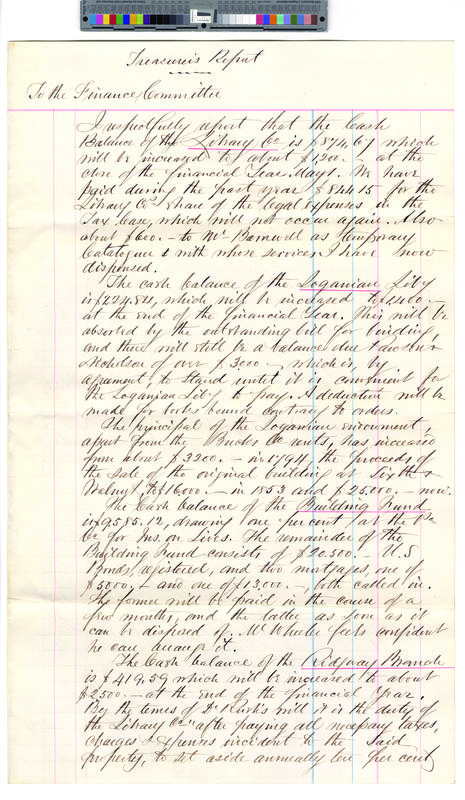 Treasurer's Report
To the Finance Committee
I respectfully report that the Cash
Balance of the Library Co is $874.67 which
will be increased to about $1,200. — at the
close of the financial Year May 1. We have
paid during the past year $844.15 for the
Library Co's share of the legal expenses in the
Tax Case, which will not occur again. Also
about $600. — to Mr Barnwell as temporary
Catalogue with whose services I have now
dispensed.
The cash balance of the Loganian Lib'y
is $224.84, which will be increased to $1,400 —
at the end of the financial Year. This will be
absorbed by the outstanding bill for binding,
and there will still be a balance due Pawson &
Nicholson of over $3000 — which is, by
agreement, to stand until it is convenient for
the Loganian Lib'y to pay. A deduction will be
made for books bound contrary to orders.
The principal of the Loganian endowment,
apart from the Bucks Co rents, has increased
from about $3200. — in 1794, the proceeds of
the sale of the original building at Sixth &
Walnut, to $16000. — in 1853 and $25.000. — now.
The Cash balance of the Building Fund
is $9,585.12, drawing one per cent at the Pa
Co for Ins. on Lives. The remainder of the
Building Fund consists of $20.500. — U.S
Bonds, registered, and two mortgages, one of
$5000. — and one of $13,000. —, both called in.
The former will be paid in the course of a
few months, and the latter as soon as it
can be disposed of. Mr Wheeler feels confident
he can arrange it.
The Cash balance of the Ridgway Branch
is $419.59 which will be increased to about
$2,500. — at the end of the financial year.
By the terms of Dr Rush's will it is the duty of
the Library Co "after paying all necessary taxes,
charges & expenses incident to the said
property, to set aside annually ten per cent